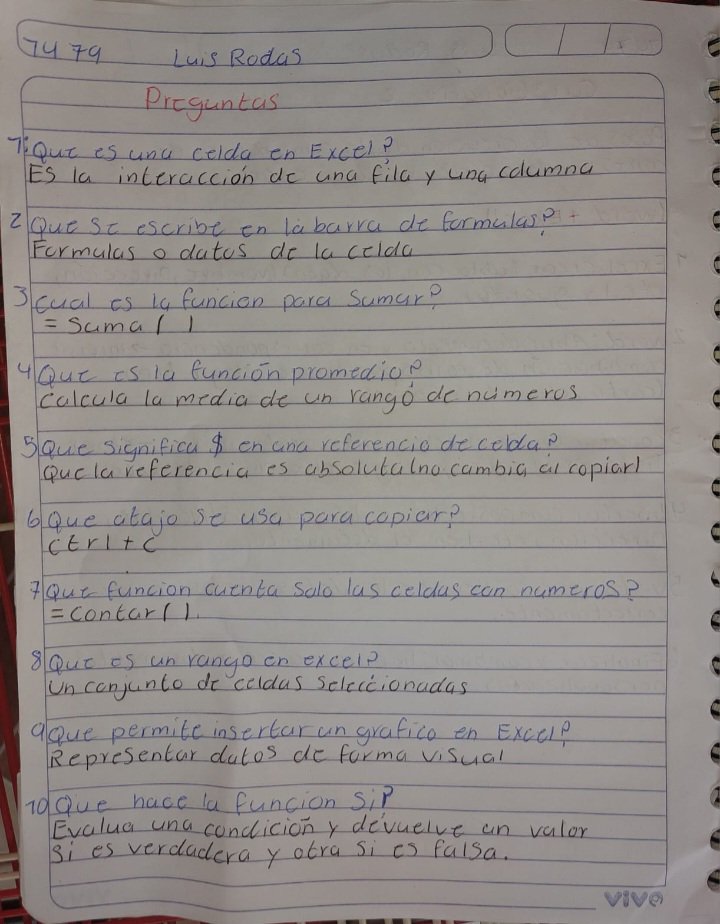 7479 Luis Rodas
Preguntas
1: Que es una celda en Excel?
Es la interacción de una fila y una columna
2 Que se escribe en la barra de formulas?
Formulas o datos de la celda
3 cual es la funcion para Sumar?
= Suma ( )
4 Que es la función promedio?
Calcula la media de un rango de números
5 Que significa $ en una referencia de celda?
Que la referencia es absoluta (no cambia al copiar)
6 Que atajo se usa para copiar?
ctrl + c
7 Que funcion cuenta Solo las celdas con numeros?
= contar ( ).
8 Que es un rango en excel?
Un conjunto de celdas seleccionadas
9 Que permite insertar un grafico en Excel?
Representar datos de forma visual
10 Que hace la funcion Si?
Evalua una condición y devuelve un valor
Si es verdadera y otra si es falsa.
vivo